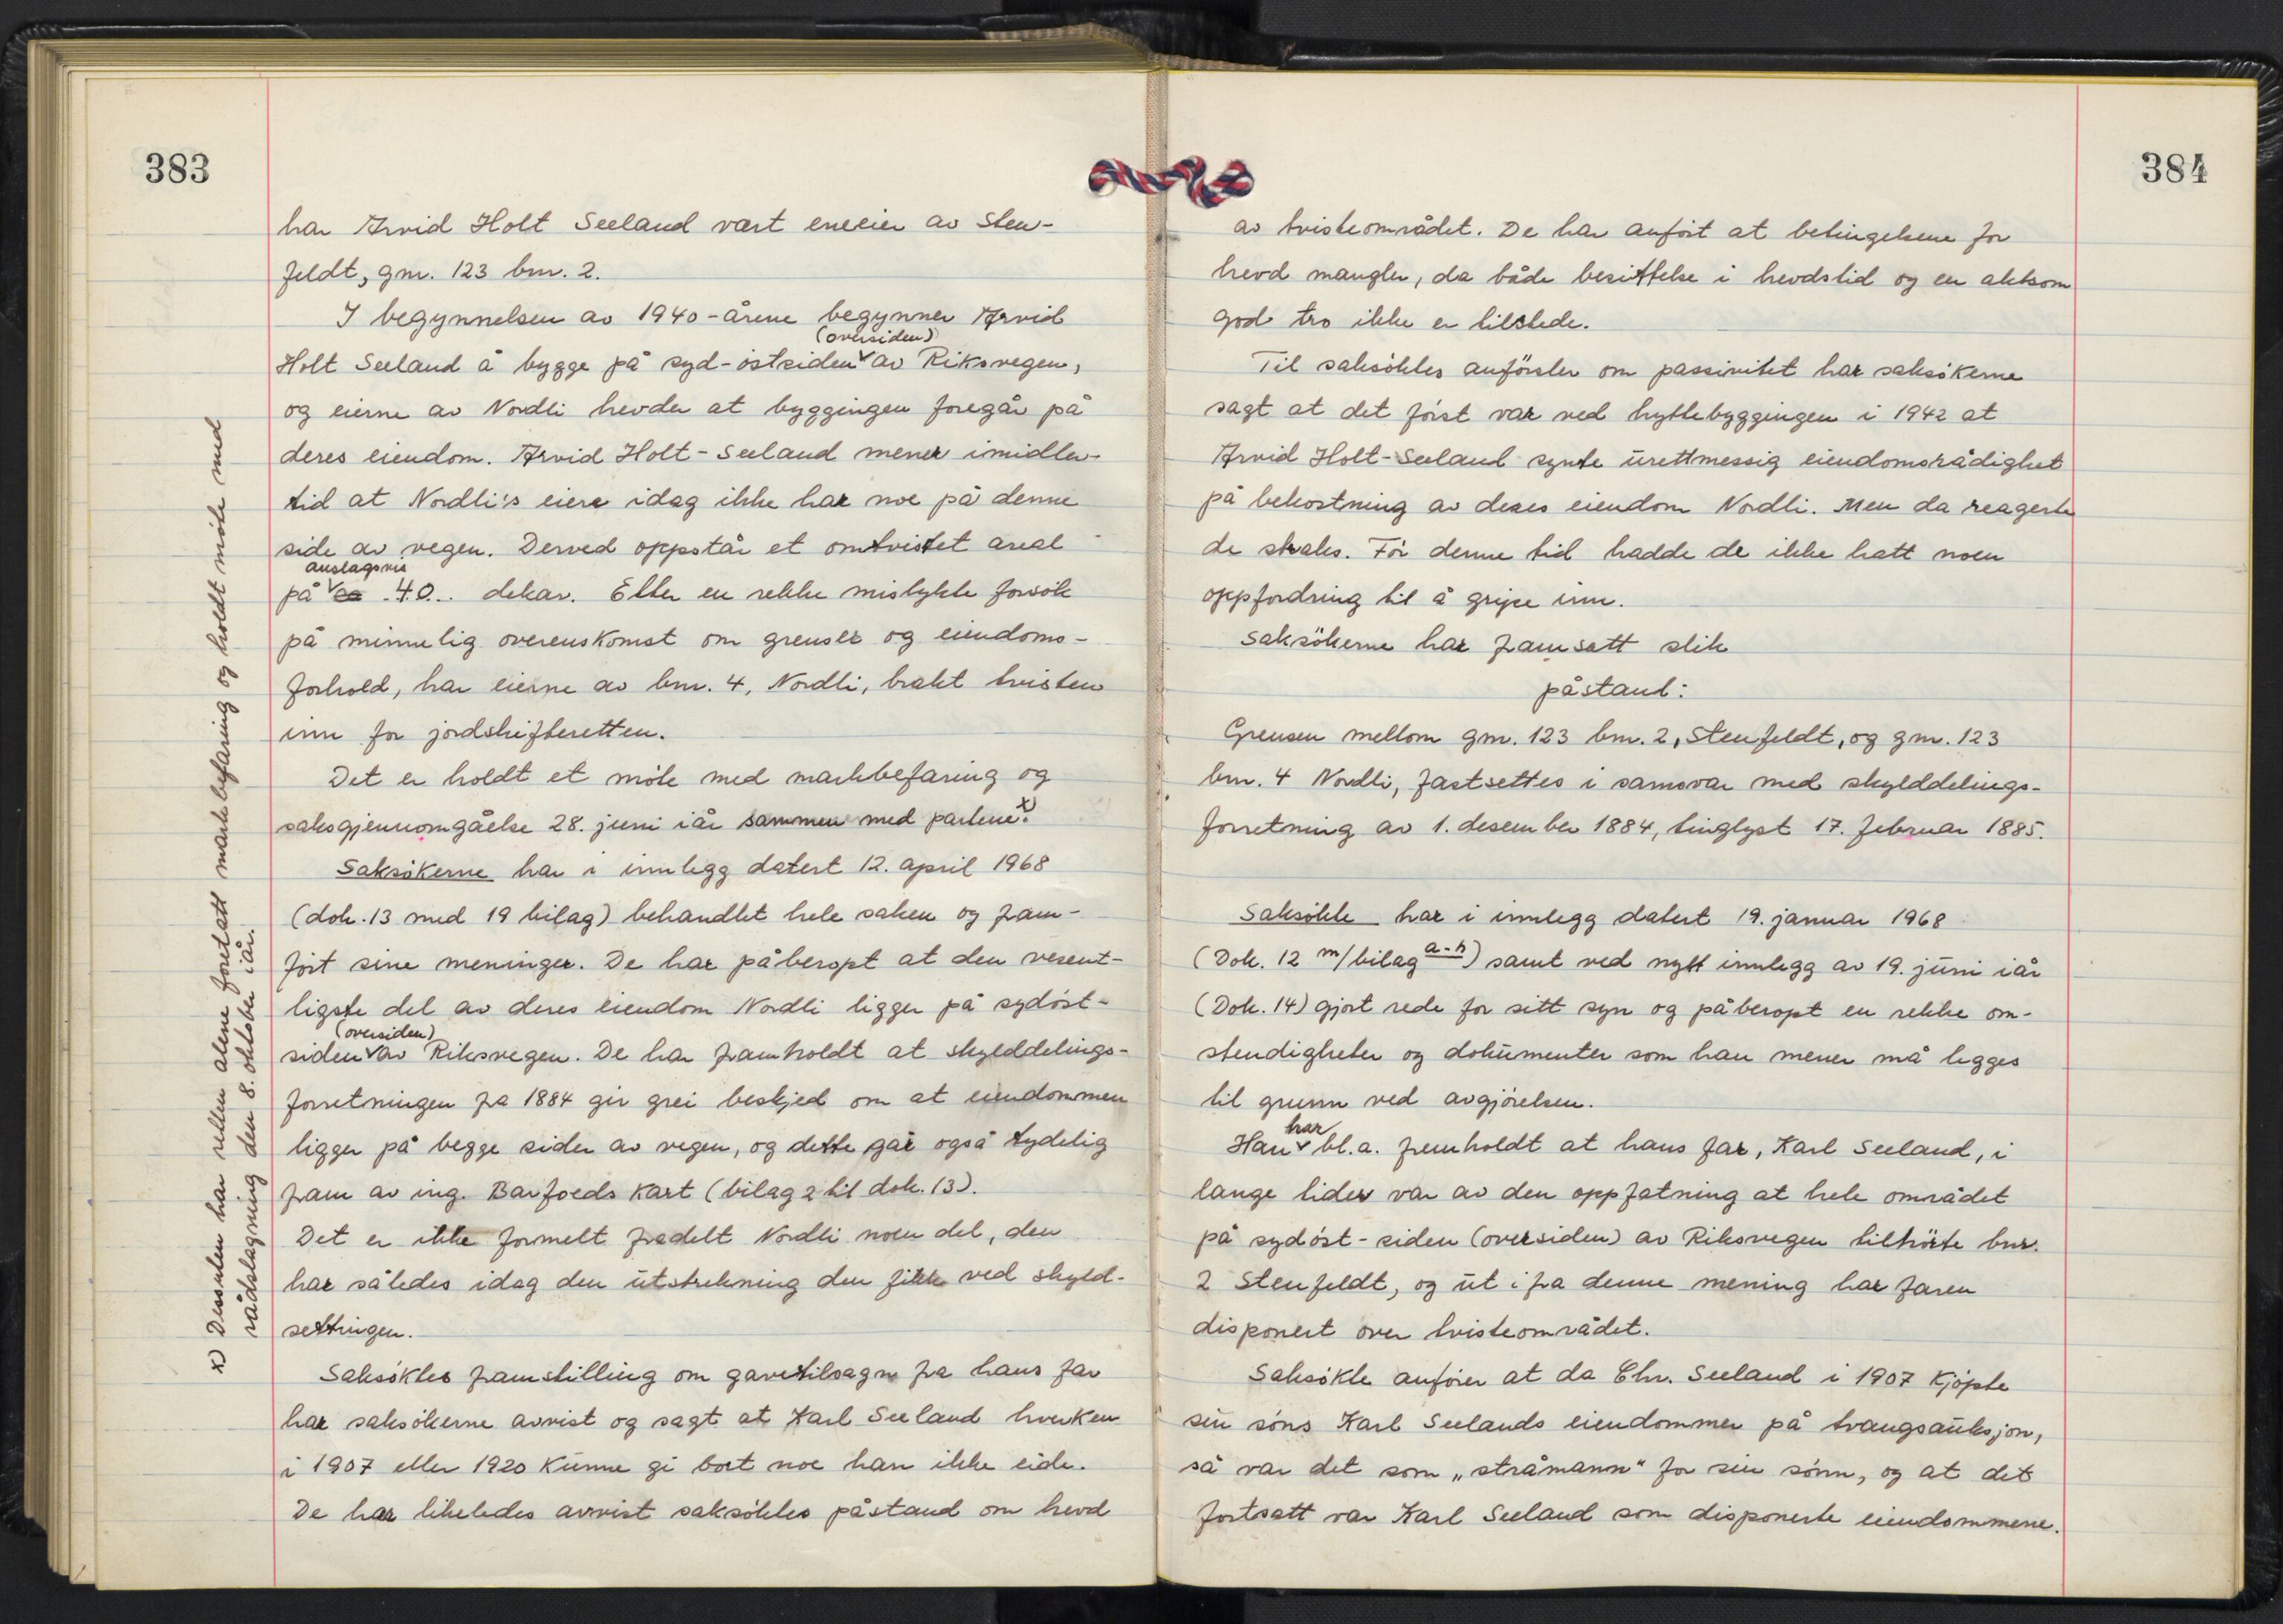 383
har Arvid Holt Seeland vært eneeier av Sten-
feldt, gnr. 123 bnr. 2.
I begynnelsen av 1940-årene begynner Arvid
(oversiden)
Holt Seeland å bygge på syd-östsiden av Riksvegen,
og eierne av Nordli hevder at byggingen foregår på
deres eiendom. Arvid Holt-Seeland mener imidler-
tid at Nordli's eiere idag ikke har noe på denne
side av vegen. Derved oppstår et omtvistet areal
anslagsvis
på ca 40.. dekar. Etter en rekke mislykte forsök
på minnelig overenskomst om grenser og eiendoms-
forhold, har eierne av bnr. 4, Nordli, brakt tvisten
inn for jordskifteretten.
Det er holdt et möte med markbefaring og
saksgjennomgåelse 28. juni iår sammen med partene. x)
Saksökerne har i innlegg datert 12. april 1968
(dok. 13 med 19 bilag) behandlet hele saken og fram-
fört sine meninger. De har påberopt at den vesent-
ligste del av deres eiendom Nordli ligger på sydöst-
(oversiden)
siden av Riksvegen. De har framholdt at skylddelings-
forretningen fra 1884 gir grei beskjed om at eiendommen
ligger på begge sider av vegen, og dette går også tydelig
fram av ing. Barfoeds kart (bilag 2 til dok. 13).
Det er ikke formelt fradelt Nordli noen del, den
har således idag den utstrekning den fikk ved skyld-
settingen.
Saksöktes framstilling om gavetilsagn fra hans far
har saksökerne avvist og sagt at Karl Seeland hverken
i 1907 eller 1920 kunne gi bort noe han ikke eide.
De har likeledes avvist saksöktes påstand om hevd
x) Dessuten har retten alene foretatt markbefaring og holdt möte med
rådslagning den 8. oktober iår.
384
av tvisteområdet. De har anfört at betingelsene for
hevd mangler, da både besittelse i hevdstid og en aktsom
god tro ikke er tilstede.
Til saksöktes anförsler om passivitet har saksökerne
sagt at det först var ved hyttebyggingen i 1942 at
Arvid Holt-Seeland synte urettmessig eiendomsrådighet
på bekostning av deres eiendom Nordli. Men da reagerte
de straks. För denne tid hadde de ikke hatt noen
oppfordring til å gripe inn.
Saksökerne har framsatt slik
påstand:
Grensen mellom gnr. 123 bnr. 2, Stenfeldt, og gnr. 123
bnr. 4 Nordli, fastsettes i samsvar med skylddelings-
forretning av 1. desember 1884, tinglyst 17. februar 1885.
Saksökte har i innlegg datert 19. januar 1968
(Dok. 12 m/bilag a-h) samt ved nytt innlegg av 19. juni iår
(Dok. 14) gjort rede for sitt syn og påberopt en rekke om-
stendigheter og dokumenter som han mener må legges
til grunn ved avgjörelsen.
har
Han bl.a. fremholdt at hans far, Karl Seeland, i
lange tider var av den oppfatning at hele området
på sydöst-siden (oversiden) av Riksvegen tilhörte bnr.
2 Stenfeldt, og ut ifra denne mening har faren
disponert over tvisteområdet.
Saksökte anförer at da Chr. Seeland i 1907 kjöpte
sin söns Karl Seelands eiendommer på tvangsauksjon,
så var det som „stråmann" for sin sönn, og at det
fortsatt var Karl Seeland som disponerte eiendommene.